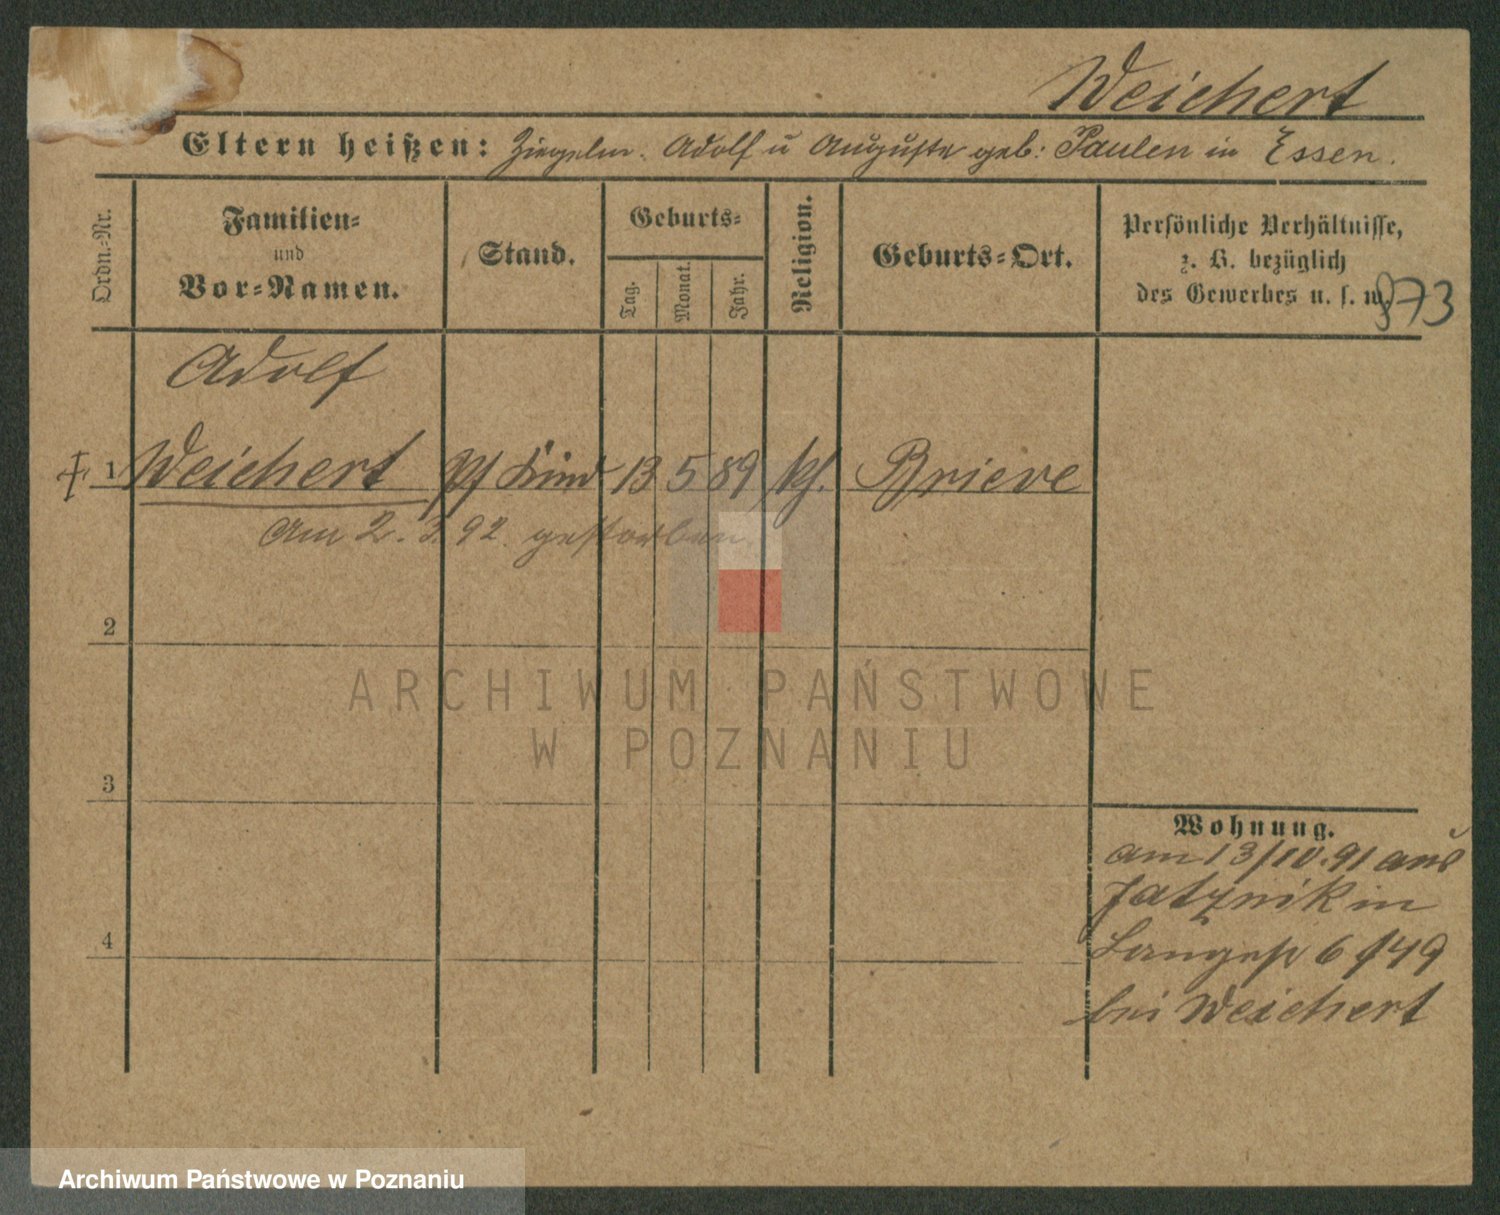 Weichert
Eltern heißen: Ziegelm. Adolf u Auguste geb: Paulen in Essen.
Ordn.-Nr.
Familien-
und
Vor-Namen.
Stand.
Geburts-
Tag.
Monat.
Jahr.
Religion.
Geburts-Ort.
Persönliche Verhältnisse,
z. B. bezüglich
des Gewerbes u. s. w.
973
Adolf
1 Weichert Kind 13 5 89 Brieve
am 2. 3. 92. gestorben.
2
ARCHIWUM PAŃSTWOWE
W POZNANIU
3
Wohnung.
am 13/10.91 aus
Jatznik in
4
Langestr 6 /49
bei Weichert
Archiwum Państwowe w Poznaniu